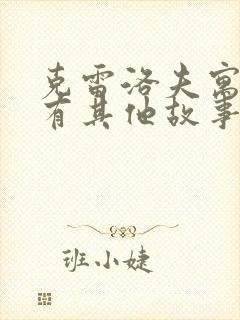 克雷洛夫寓
有其他故事
班小婕